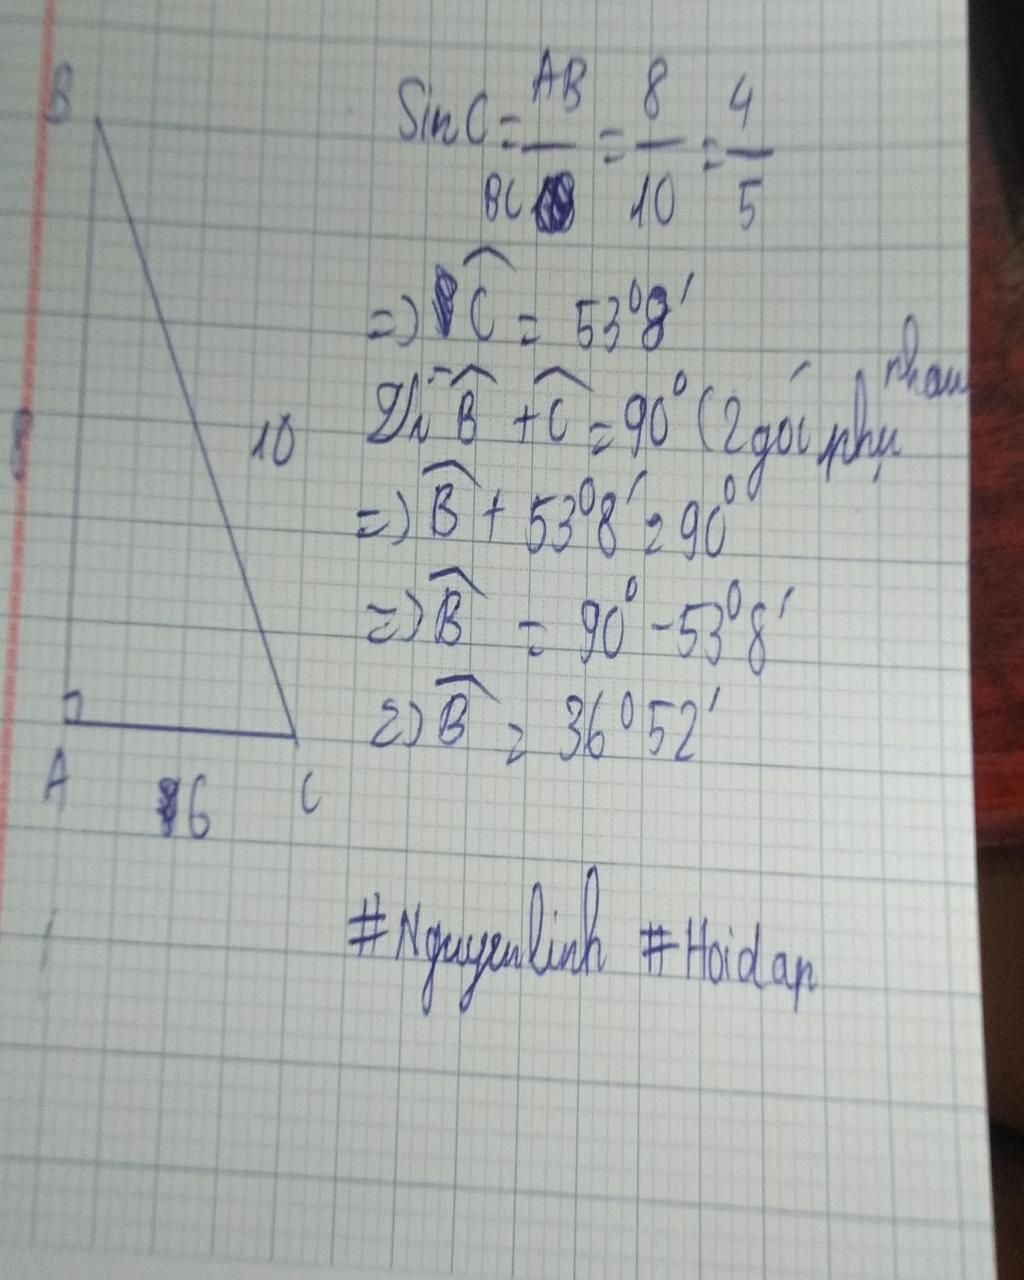 B
8
10
A
6
C
Sin C = AB/BC = 8/10 = 4/5
=> Ĉ = 53°8'
Vì B̂ + Ĉ = 90° (2 gói phụ nhau
=> B̂ + 53°8' = 90°
=> B̂ = 90° - 53°8'
=> B̂ = 36°52'
#Nguyenlinh #Hoidap